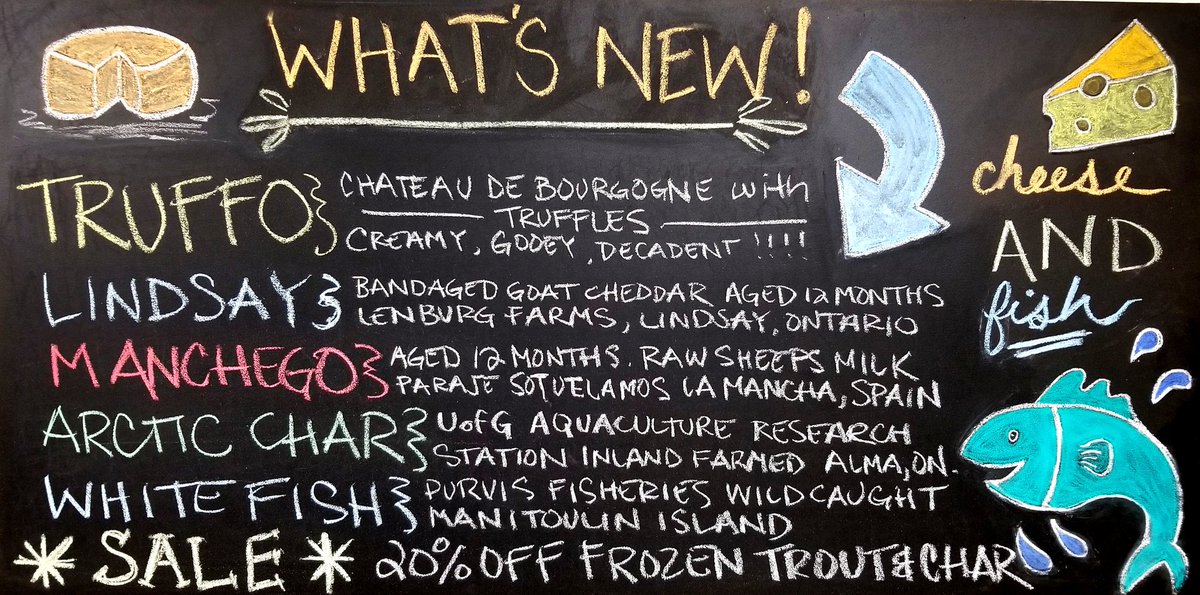 WHAT'S NEW!
TRUFFO} CHATEAU DE BOURGOGNE with
TRUFFLES
CREAMY, GOOEY, DECADENT !!!!
LINDSAY} BANDAGED GOAT CHEDDAR AGED 12 MONTHS
LENBURG FARMS, LINDSAY, ONTARIO
MANCHEGO} AGED 12 MONTHS. RAW SHEEPS MILK
PARAJE SOTUELAMOS LA MANCHA, SPAIN
ARCTIC CHAR} UofG AQUACULTURE RESEARCH
STATION INLAND FARMED ALMA, ON.
WHITE FISH} PURVIS FISHERIES WILD CAUGHT
MANITOULIN ISLAND
* SALE * 20% OFF FROZEN TROUT & CHAR
cheese
AND
fish